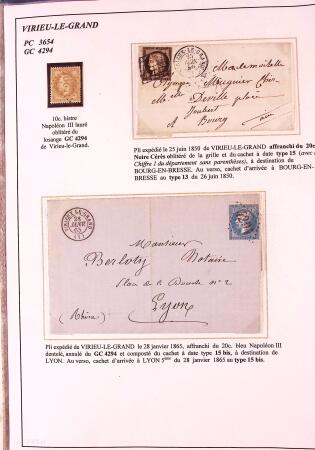 VIRIEU-LE-GRAND
PC 3654
GC 4294
10c. bistre
Napoléon III lauré
oblitéré du
losange GC 4294
de Virieu-le-Grand.
Mademoiselle
Deville place
Joubert
A Bourg
Pli expédié le 25 juin 1850 de VIRIEU-LE-GRAND affranchi du 20c
Noire Cérès oblitéré de la grille et du cachet à date type 15 (avec
Chiffre 1 du département sans parenthèses), à destination de
BOURG-EN-BRESSE. Au verso, cachet d'arrivée à BOURG-EN-
BRESSE au type 13 du 26 juin 1850.
VIRIEU-LE-GRAND
28
JANV
65
Monsieur
Berloty Notaire
Place de la n° 2
Lyon
(Rhône)
Pli expédié de VIRIEU-LE-GRAND le 28 janvier 1865, affranchi du 20c. bleu Napoléon III
dentelé, annulé du GC 4294 et composté du cachet à date type 15 bis, à destination de
LYON. Au verso, cachet d'arrivée à LYON 5ème du 28 janvier 1865 au type 15 bis.